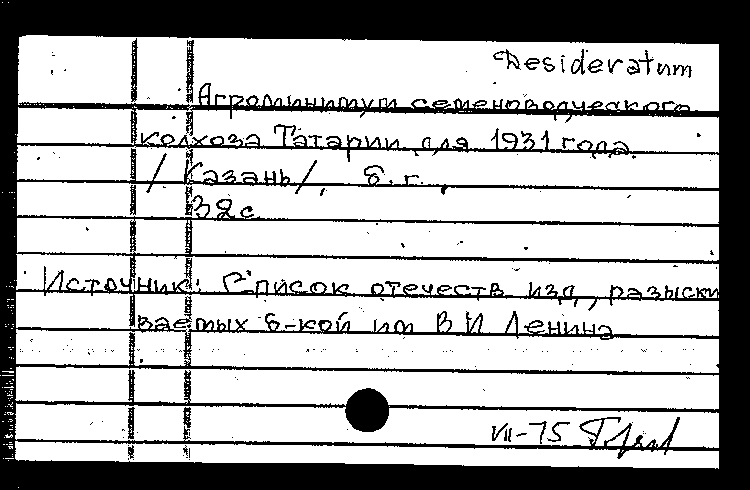 Desideratum
Агроминимум семеноводческого
колхоза Татарии для 1931 года.
/Казань/, б. г.,
32 с.
Источник: Список отечеств изд, разыски
ваемых б-кой им В И Ленина
VII-75